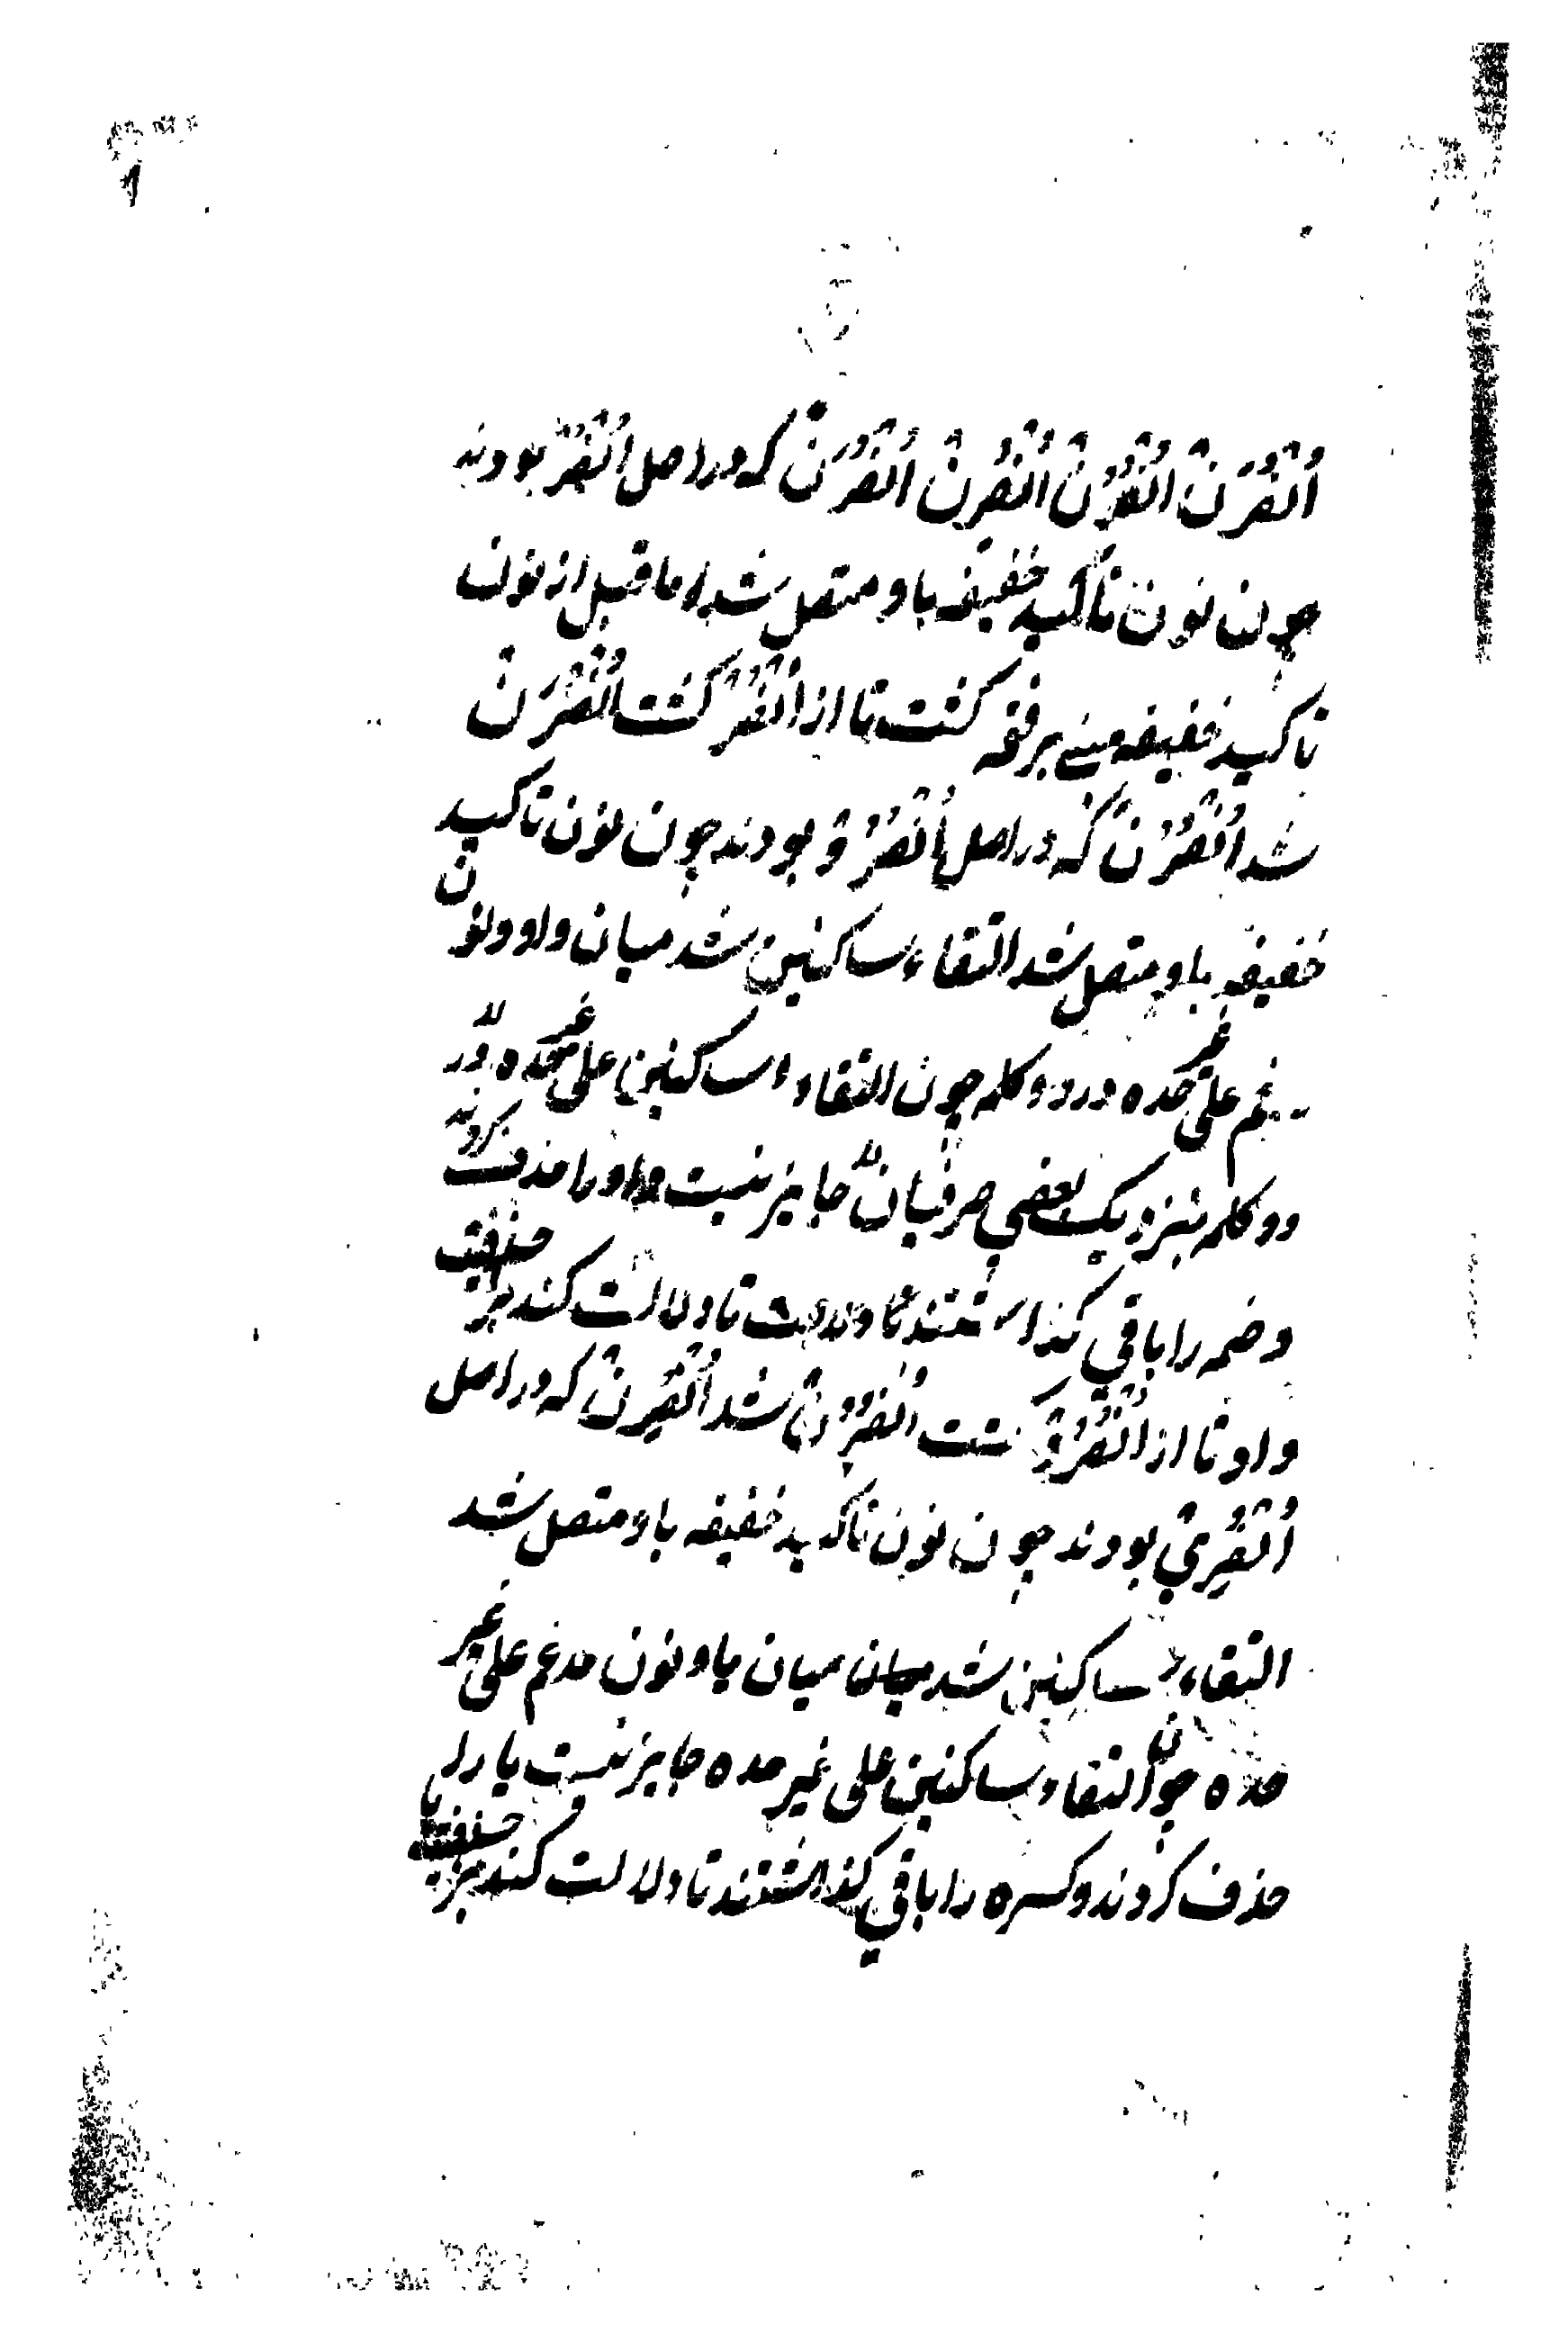 اُنْصُرَنْ اُنْصُرُنْ اُنْصُرِنْ اُنْصُرَنْ که دراصل اُنْصُرْ بودند
چون نون تاکید خفیفه باو متصل شد ما قبل از نون
تاکید خفیفه مبنی بر فتحه گشت تا از اُنْصُرْ گشت اُنْصُرَنْ
شد اُنْصُرُنْ که دراصل اُنْصُرُوْ بودند چون نون تاکید
خفیفه باو متصل شد التقاء ساکنین شد میان واو و نون
غم علی غیر حده در دو کلمه چون التقاء ساکنین علی غیر حده در
دو کلمه بنزدیک بعضی صرفیان جایز نیست واو را حذف کردند
و ضمه را باقی گذاشتند تا دلالت کند بر حذفیت
واو تا از اُنْصُرُوْ گشت اُنْصُرُنْ شد اُنْصُرِنْ که دراصل
اُنْصُرِيْ بودند چون نون تاکید خفیفه باو متصل شد
التقاء ساکنین شد میان میان یا و نون مدغم علی غیر
حده چون التقاء ساکنین علی غیر حده جایز نیست یا را
حذف کردند و کسره را باقی گذاشتند تا دلالت کند بر حذفیت یا